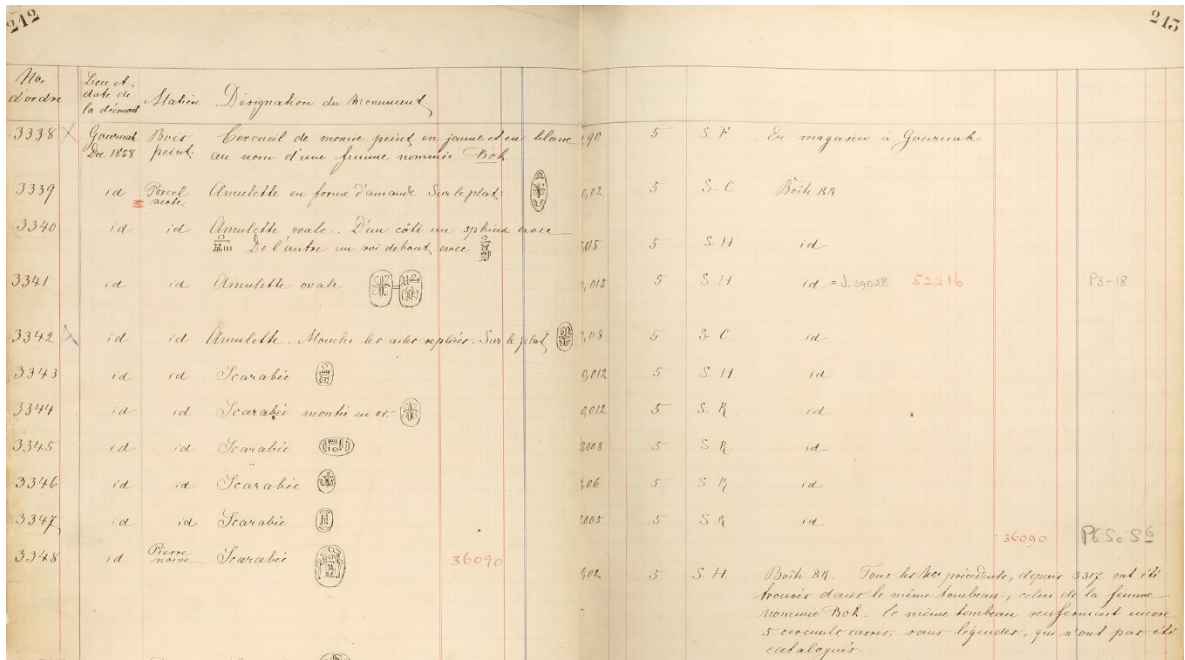 212
213
No. d'ordre Lieu et date de la découverte Matière Désignation du Monument
3338 Gournah Dec. 1858 Bois peint. Cercueil de momie peint en jaune et en blanc ,90 5 S. F En magasin à Gournah
au nom d'une femme nommée Bek
3339 id Porcel verte. Amulette en forme d'amande Sur le plat: 0,02 5 S. C. Boîte RR
3340 id id Amulette ovale. D'un côté un sphinx avec
De l'autre un roi debout avec ,015 5 S. H id
3341 id id Amulette ovale 0,015 5 S. H id = J. 39028 52216 P3-18
3342 id id Amulette. Mouche les ailes repliées. Sur le plat 0,08 5 S. C. id
3343 id id Scarabée 0,012 5 S. H id
3344 id id Scarabée monté en or. 0,012 5 S. R id
3345 id id Scarabée 0008 5 S. R id
3346 id id Scarabée ,06 5 S. R id
3347 id id Scarabée 0005 5 S. R id
36090
3348 id Pierre noire Scarabée 36090
0,02 5 S. H Boîte RR. Tous les Nos précédents, depuis 3317 ont été
trouvés dans le même tombeau, celui de la femme
nommée Bek. Le même tombeau renfermait encore
5 cercueils carrés, sans légendes, qui n'ont pas été
catalogués.